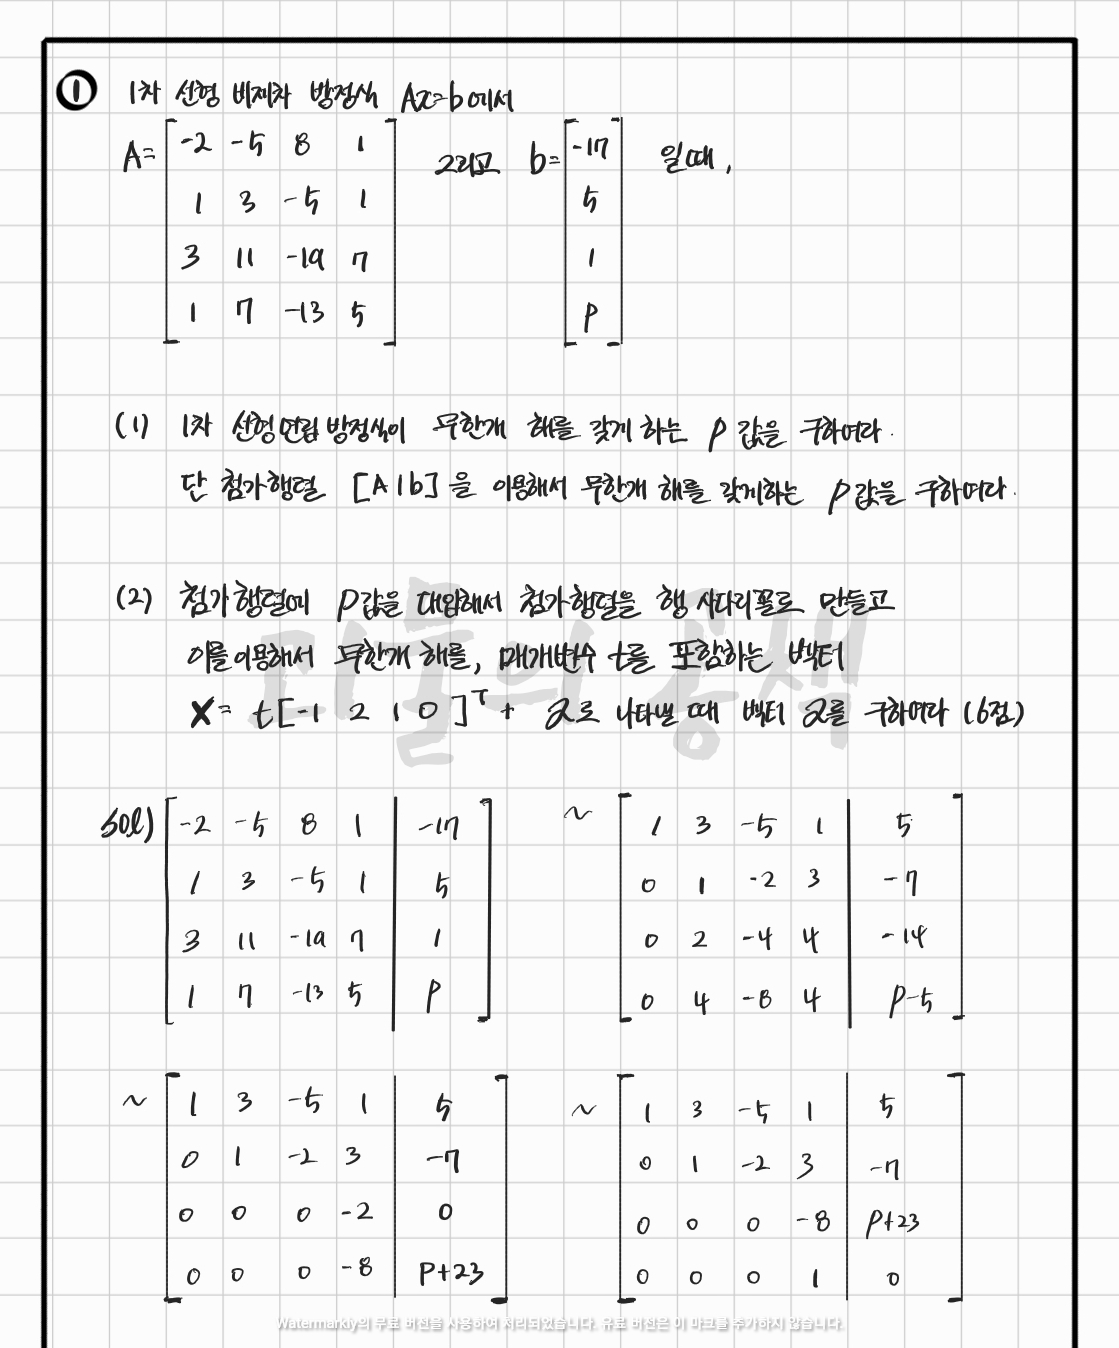 ① 1차 선형 비제차 방정식 Ax=b에서
A= [ -2 -5 8 1 그리고 b= [ -17 일때,
1 3 -5 1 5
3 11 -19 7 1
1 7 -13 5 ] p ]
(1) 1차 선형연립방정식이 무한개 해를 갖게 하는 p 값을 구하여라.
단 첨가행렬 [A|b]을 이용해서 무한개 해를 갖게하는 p값을 구하여라.
(2) 첨가행렬에 p값을 대입해서 첨가행렬을 행 사다리꼴로 만들고
이를이용해서 무한개 해를, 매개변수 t를 포함하는 벡터
X= t[-1 2 1 0]ᵀ + a로 나타낼 때 벡터 a를 구하여라 (6점)
sol) [ -2 -5 8 1 | -17 ] ~ [ 1 3 -5 1 | 5 ]
1 3 -5 1 | 5 0 1 -2 3 | -7
3 11 -19 7 | 1 0 2 -4 4 | -14
1 7 -13 5 | p 0 4 -8 4 | p-5
~ [ 1 3 -5 1 | 5 ] ~ [ 1 3 -5 1 | 5 ]
0 1 -2 3 | -7 0 1 -2 3 | -7
0 0 0 -2 | 0 0 0 0 -8 | p+23
0 0 0 -8 | p+23 0 0 0 1 | 0
Watermarkly의 무료 버전을 사용하여 처리되었습니다. 유료 버전은 이 마크를 추가하지 않습니다.